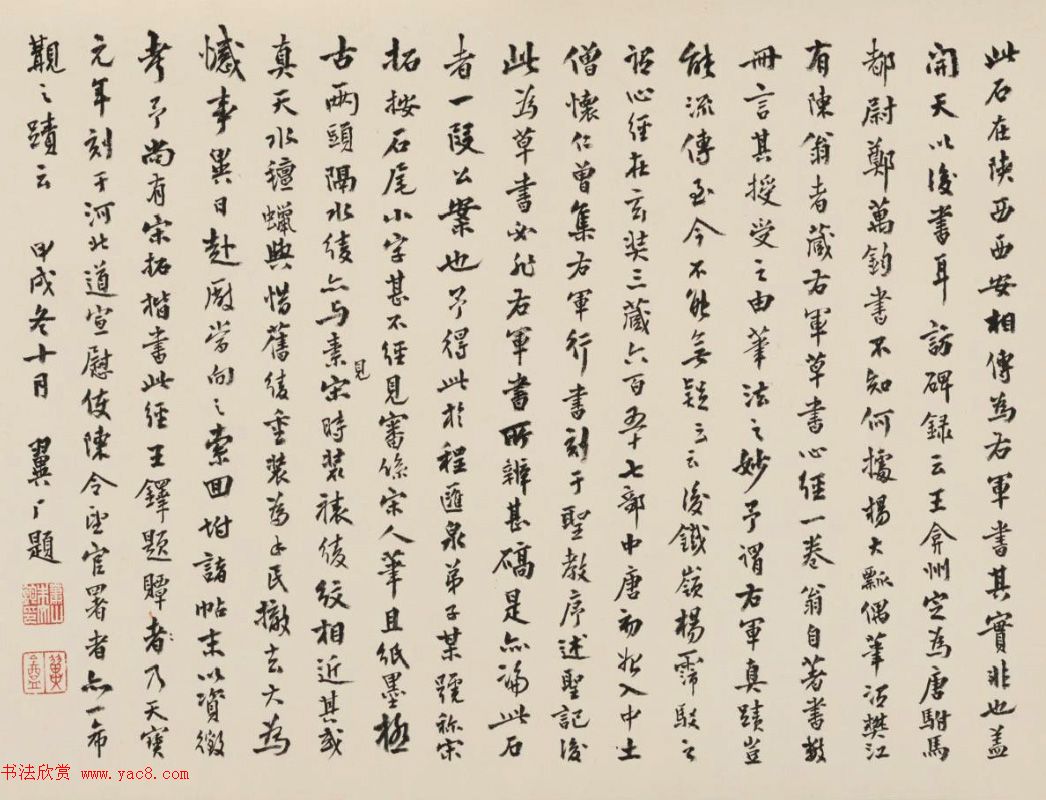 此石在陕西西安相傳為右軍書其實非也蓋
開天以後書耳訪碑録云王弇州定為唐駙馬
都尉鄭萬鈞書不知何據楊大瓢偶筆沔樊江
有陳翁者藏右軍草書心經一卷翁自著書數
冊言其授受之由筆法之妙予謂右軍真蹟豈
能流傳至今不能無疑云云後鐵嶺楊霈駁之
謂心經在玄奘三藏六百五十七部中唐初始入中土
僧懷仁曾集右軍行書刻于聖教序述聖記後
此為草書必非右軍書所辨甚礄是亦論此石
者一段公案也予得此於程匯泉弟子某號称宋
拓按石尾小字甚不經見審係宋人筆且紙墨極
古兩頭隔水綾亦与素見宋時装裱綾紋相近其或
真天水氊蠟與惜舊綾重装為手民撤去大為
憾事異日赴廠當向之索回坿諸帖末以資徵
考予尚有宋拓楷書此經王鐸題贉者乃天寶
元年刻于河北道宣慰使陳令望官署者亦一希
覯之蹟云 甲戌冬十月 翼厂題
书法欣赏 www.yac8.com